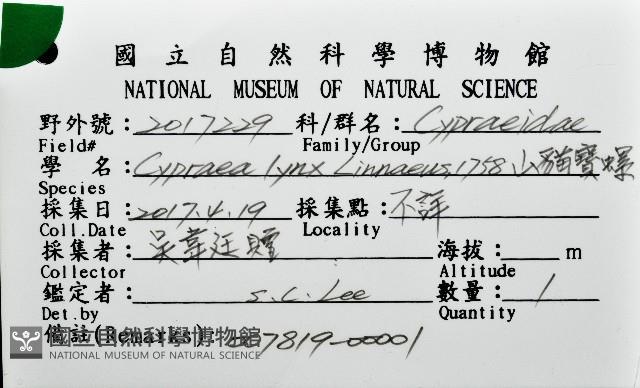 國立自然科學博物館
NATIONAL MUSEUM OF NATURAL SCIENCE
野外號：2017229 科/群名：Cypraeidae
Field# Family/Group
學 名：Cypraea lynx Linnaeus, 1758 山貓寶螺
Species
採集日：2017.4.19 採集點：不詳
Coll.Date Locality
採集者：吳韋廷贈 海拔：m
Collector Altitude
鑑定者：S.C. Lee 數量：1
Det.by Quantity
備註(Remarks): 7819-00001
國立自然科學博物館
NATIONAL MUSEUM OF NATURAL SCIENCE